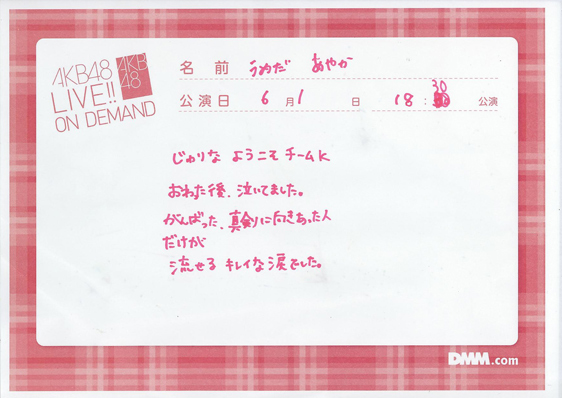 AKB48
LIVE!!
ON DEMAND
AKB
48
名前 うめだ あやか
公演日 6月1日 18:30 公演
じゅりな ようこそ チームK
おわた後、泣いてました。
がんばった、真剣に向きあった人
だけが
流せる キレイな涙でした。
DMM.com